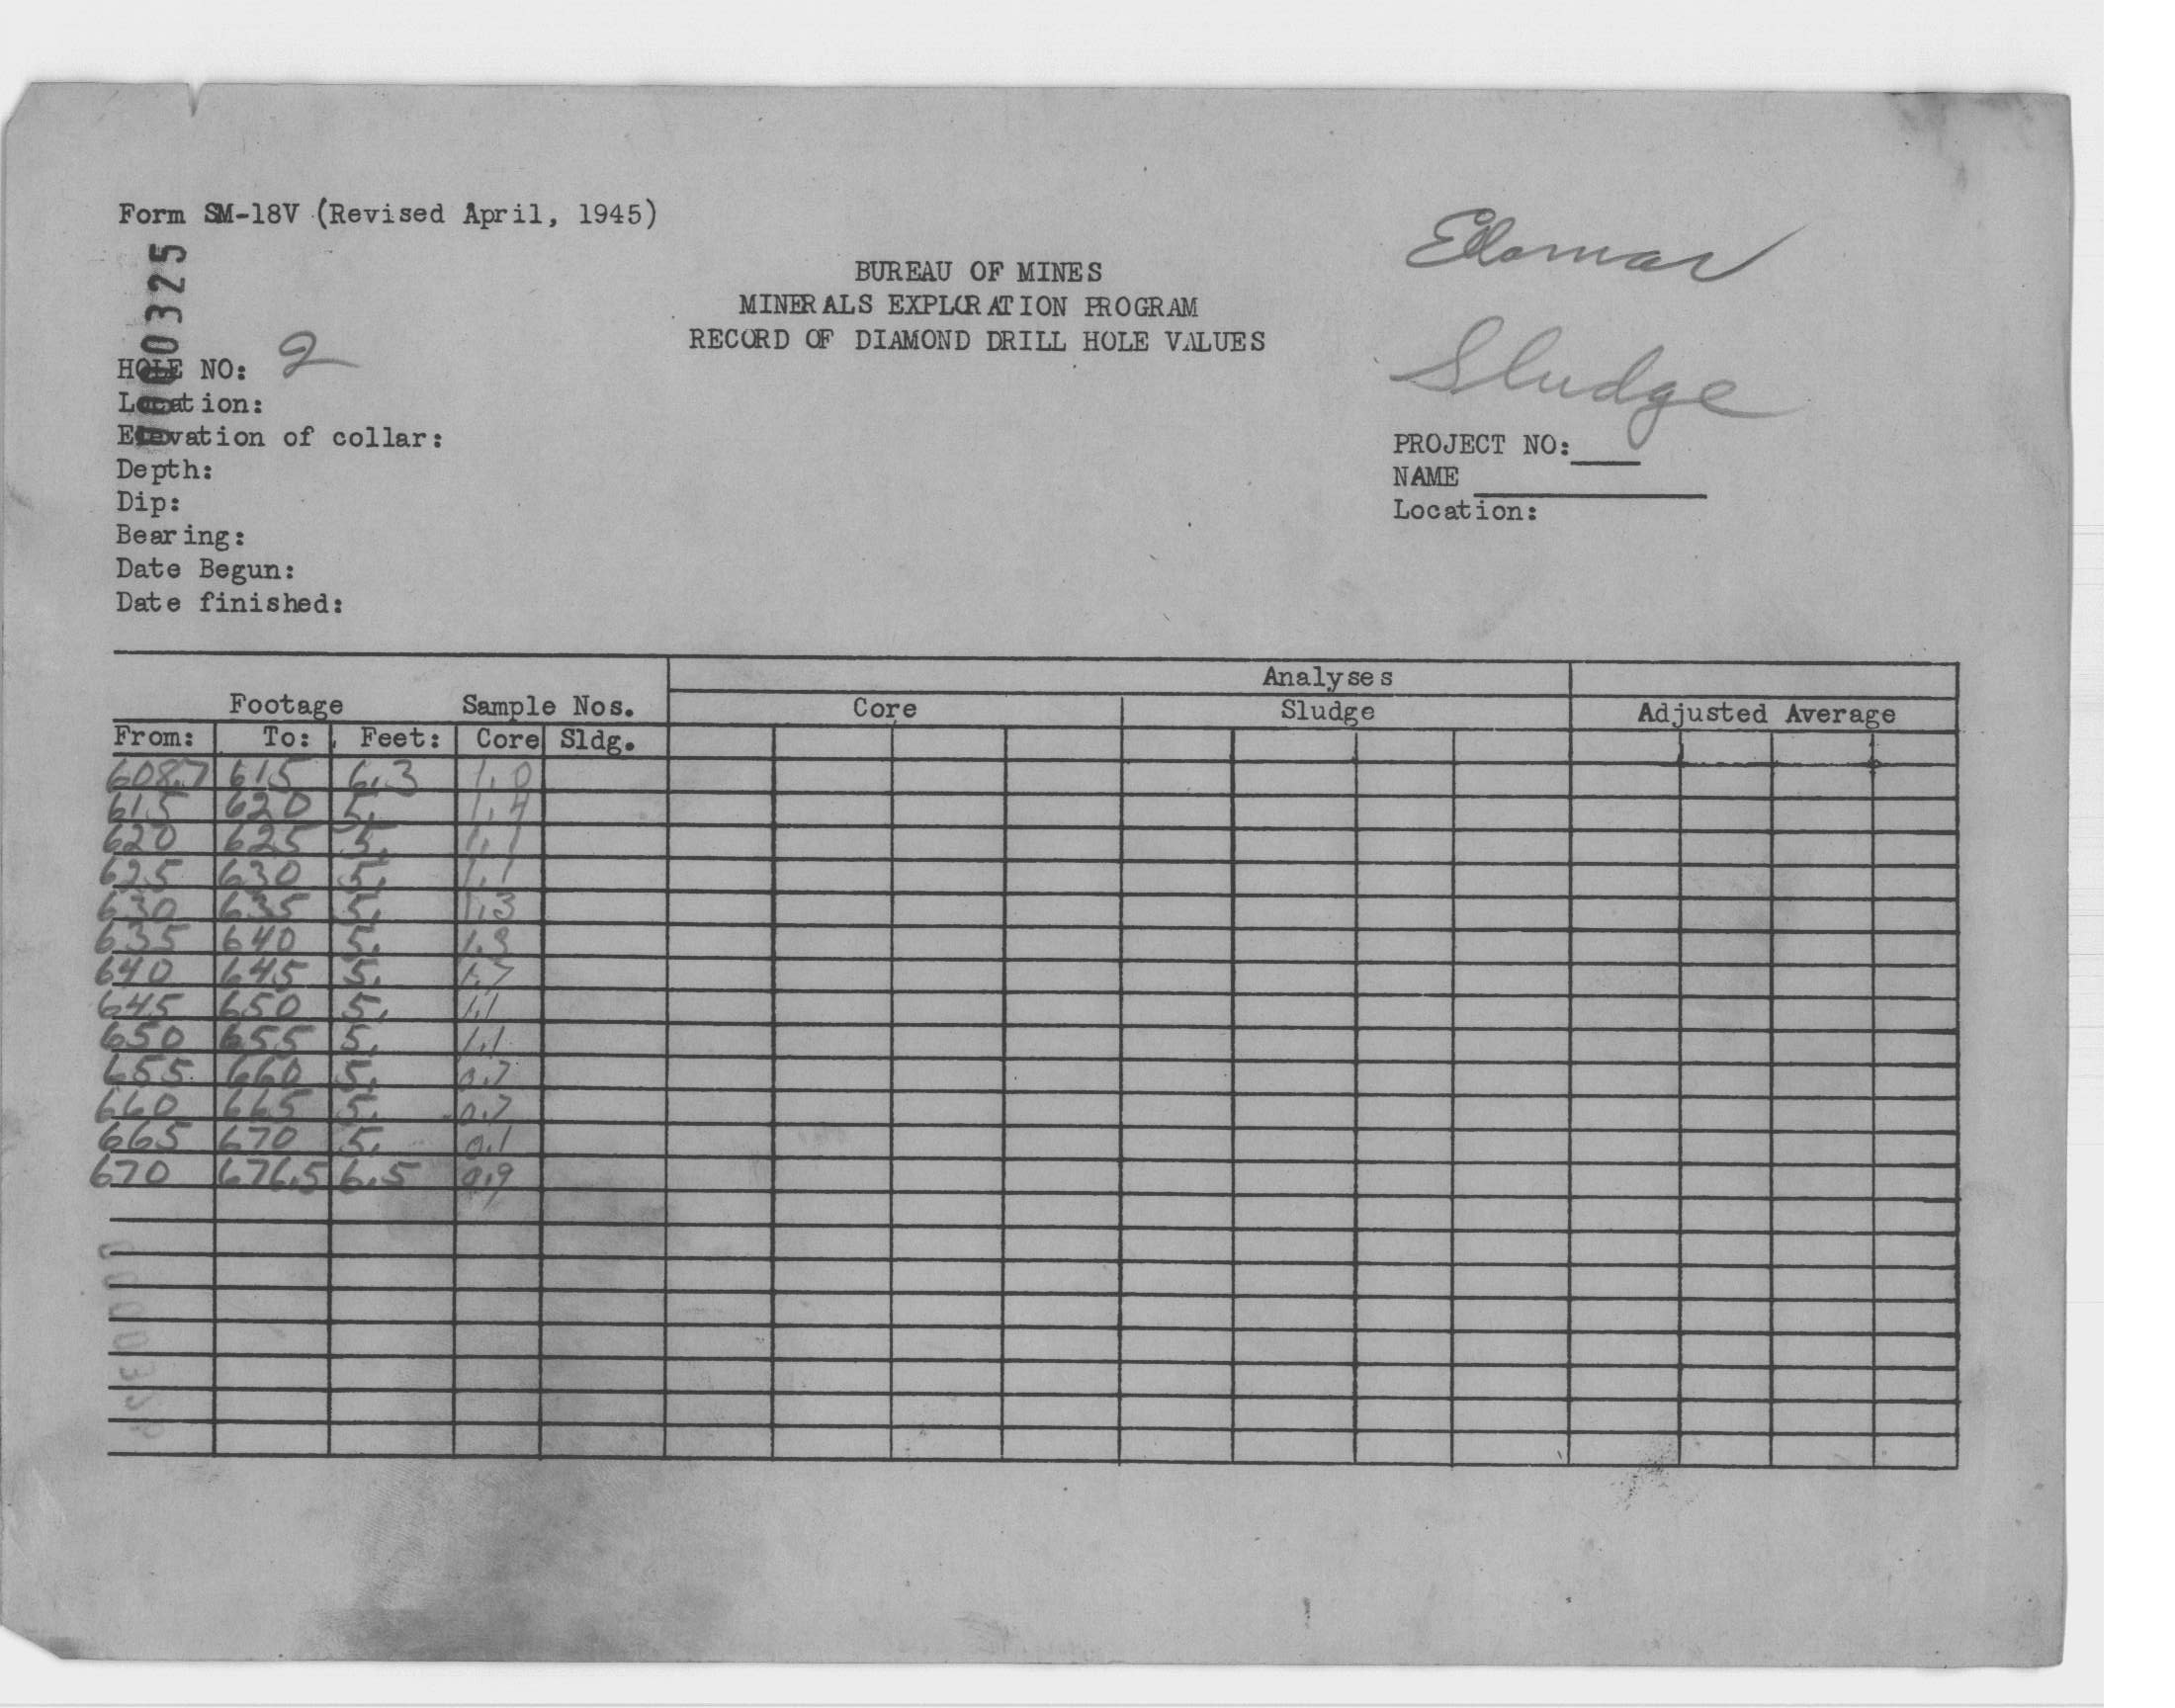 Form SM-18V (Revised April, 1945)
0000325
BUREAU OF MINES
MINERALS EXPLORATION PROGRAM
RECORD OF DIAMOND DRILL HOLE VALUES
Sludge
HOLE NO: 2
Location:
Elevation of collar:
Depth:
Dip:
Bearing:
Date Begun:
Date finished:
PROJECT NO:
NAME
Location:
Analyses
Footage Sample Nos. Core Sludge Adjusted Average
From: To: Feet: Core Sldg.
608.7 615 6.3 1.0
615 620 5. 1.4
620 625 5. 1.1
625 630 5. 1.1
630 635 5. 1.3
635 640 5.
640 645 5. 1.7
645 650 5. 1.1
650 655 5. 1.1
655 660 5. 0.7
660 665 5. 0.7
665 670 5. 0.1
670 676.5 6.5 0.9